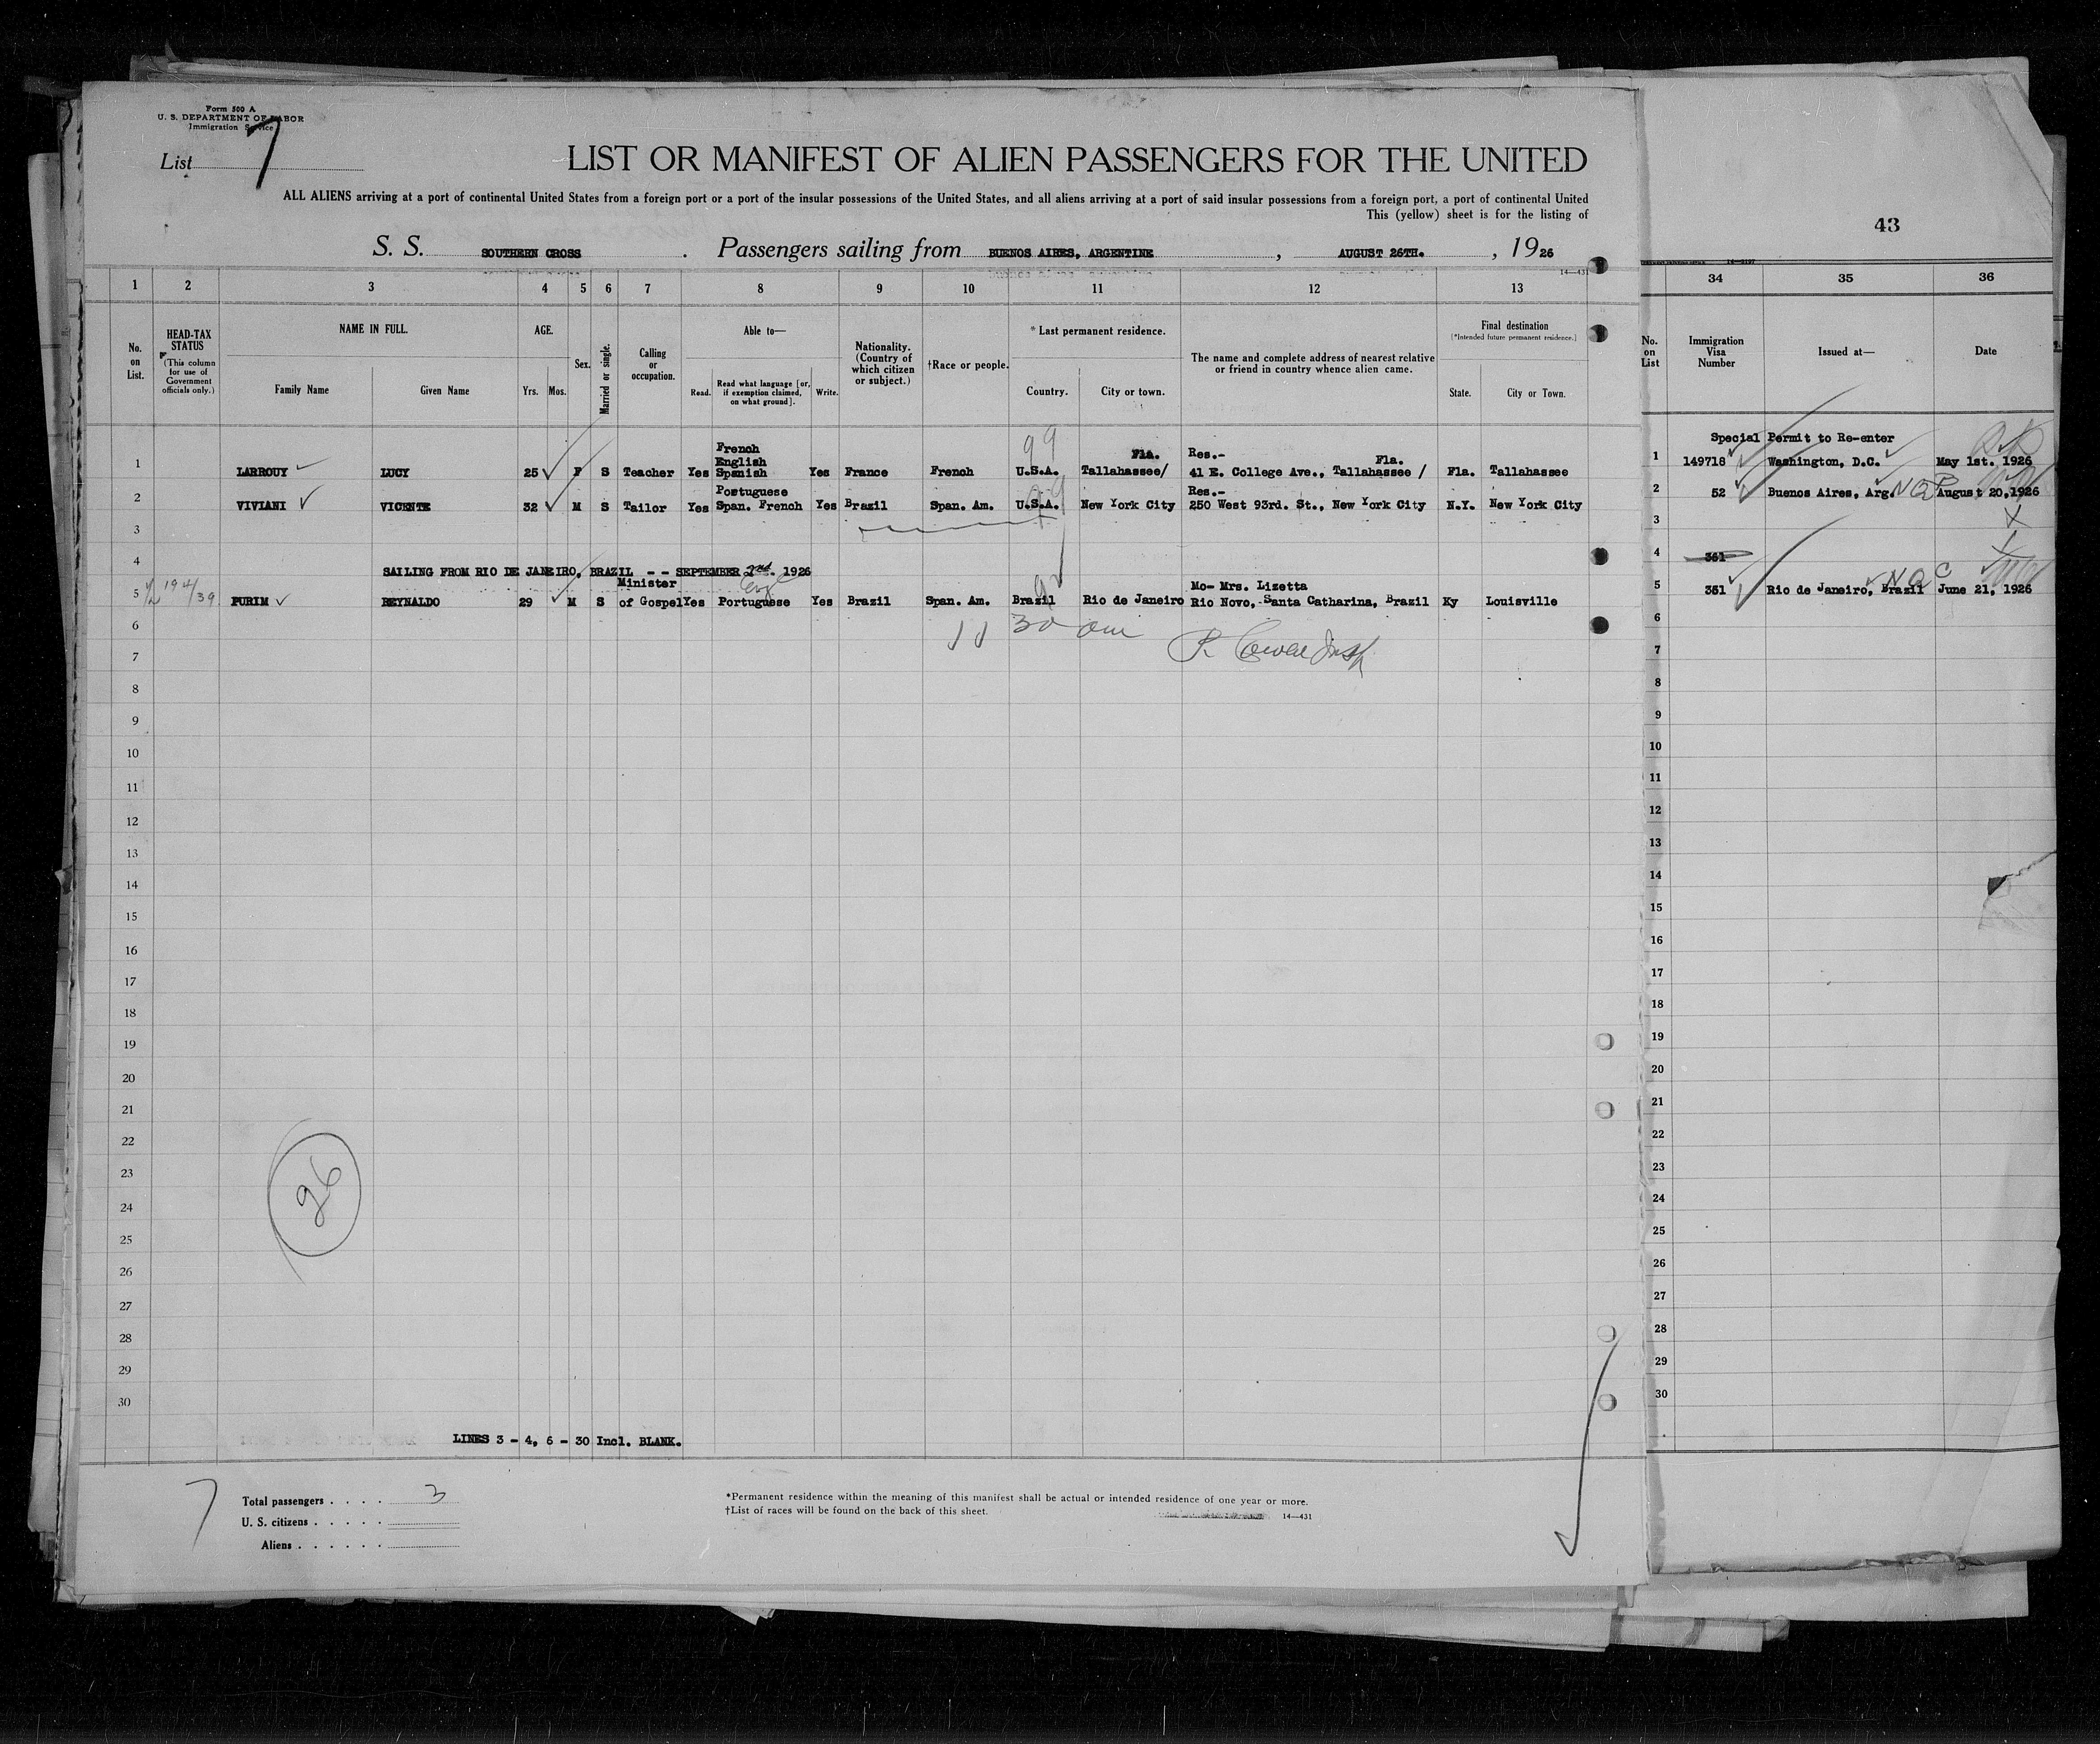 Form 500 A
U. S. DEPARTMENT OF LABOR
Immigration Service
List 7
LIST OR MANIFEST OF ALIEN PASSENGERS FOR THE UNITED
ALL ALIENS arriving at a port of continental United States from a foreign port or a port of the insular possessions of the United States, and all aliens arriving at a port of said insular possessions from a foreign port, a port of continental United
This (yellow) sheet is for the listing of
43
S. S. SOUTHERN CROSS . Passengers sailing from BUENOS AIRES, ARGENTINE , AUGUST 26TH. , 1926
14—431
1 2 3 4 5 6 7 8 9 10 11 12 13 34 35 36
No. on List.
HEAD-TAX STATUS
(This column for use of Government officials only.)
NAME IN FULL.
Family Name Given Name
AGE.
Yrs. Mos.
Sex.
Married or single.
Calling or occupation.
Able to—
Read. Read what language [or, if exemption claimed, on what ground]. Write.
Nationality. (Country of which citizen or subject.)
†Race or people.
*Last permanent residence.
Country. City or town.
The name and complete address of nearest relative or friend in country whence alien came.
Final destination
[*Intended future permanent residence.]
State. City or Town.
No. on List
Immigration Visa Number
Issued at—
Date
99
French
English Fla. Res.- Fla. Special Permit to Re-enter
1 LARROUY LUCY 25 F S Teacher Yes Spanish Yes France French U.S.A. Tallahassee/ 41 E. College Ave., Tallahassee / Fla. Tallahassee 1 149718 Washington, D.C. May 1st. 1926
Portuguese Res.-
2 VIVIANI VICENTE 32 M S Tailor Yes Span. French Yes Brazil Span. Am. U.S.A. New York City 250 West 93rd. St., New York City N.Y. New York City 2 52 Buenos Aires, Arg. August 20, 1926
3 3
4 4 361
SAILING FROM RIO DE JANEIRO, BRAZIL -- SEPTEMBER 2nd. 1926
Minister Eng Mo- Mrs. Lizetta
5 194/39 PURIM REYNALDO 29 M S of Gospel Yes Portuguese Yes Brazil Span. Am. Brazil Rio de Janeiro Rio Novo, Santa Catharina, Brazil Ky Louisville 5 361 Rio de Janeiro, Brazil June 21, 1926
6 11 30 am 6
7 7
8 8
9 9
10 10
11 11
12 12
13 13
14 14
15 15
16 16
17 17
18 18
19 19
20 20
21 21
22 22
23 23
24 24
25 25
26 26
27 27
28 28
29 29
30 30
26
LINES 3 - 4, 6 - 30 Incl. BLANK.
7
Total passengers . . . . 3
U. S. citizens . . . . .
Aliens . . . . . .
*Permanent residence within the meaning of this manifest shall be actual or intended residence of one year or more.
†List of races will be found on the back of this sheet.
14—431